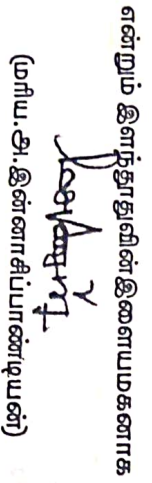 என்றும் இளந்தூதுவின் இளையமகனாக
(மரிய.அ.இன்னாசிப்பாண்டியன்)